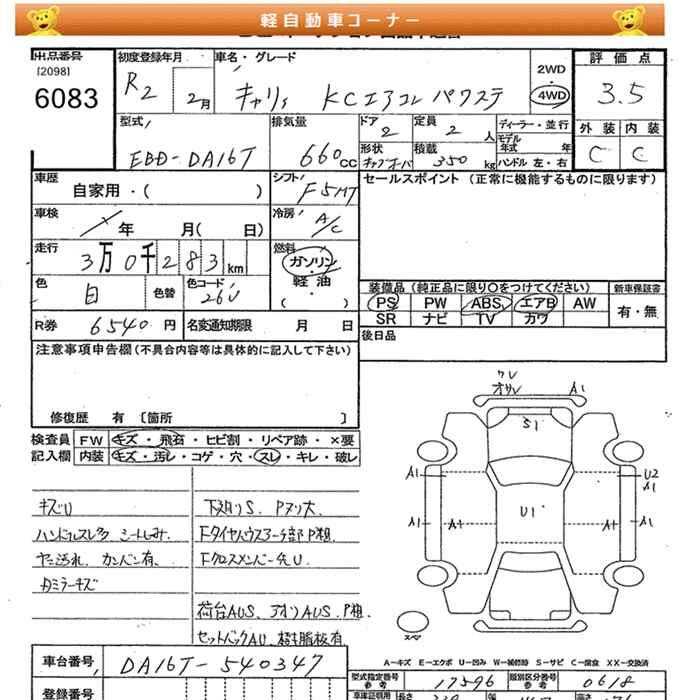 軽自動車コーナー
出品番号
[2098]
6083
初度登録年月
R2 2月
車名・グレード
キャリィ KCエアコン パワステ
2WD
・
4WD
評価点
3.5
外装 内装
C C
型式
EBD-DA16T
排気量
660cc
ドア
2
定員
2人
ディーラー・並行
モデル年式 年
形状
積載
350kg
ハンドル 左・右
車歴
自家用・( )
シフト
F5MT
セールスポイント (正常に機能するものに限ります)
車検
年 月( 日)
冷房
A/C
走行
3万0千283km
燃料
ガソリン
・
軽油
・
( )
色
白
色替
色コード
26U
装備品(純正品に限り○をつけてください)
新車保証書
PS PW ABS エアB AW
有・無
SR ナビ TV カワ
R券 6540円
名変通知期限 月 日
後日品
注意事項申告欄(不具合内容等は具体的に記入して下さい)
修復歴 有 [箇所 ]
検査員 FW キズ・飛石・ヒビ割・リペア跡・×要
記入欄 内装 キズ・汚レ・コゲ・穴・スレ・キレ・破レ
キズU
ハンドルスレ多 シートしみ
ヤニ汚れ、カンバン有、
下廻りS、Pヌリ大
FタイヤハウスアーチP粗
FクロスメンバーチU
荷台AUS、アオリAUS、P粗、
セットバックAU、樹脂板有
ワレ
A1
S1
A1
U2
A1
A1
A1
U1
A1
A1
スペア
A-キズ E-エクボ U-凹み W-補修跡 S-サビ C-腐食 XX-交換済
車台番号
DA16T-540347
型式指定番号
参考
17596
類別区分番号
参考
0618
登録番号
車庫証明用
長さ
幅
高さ